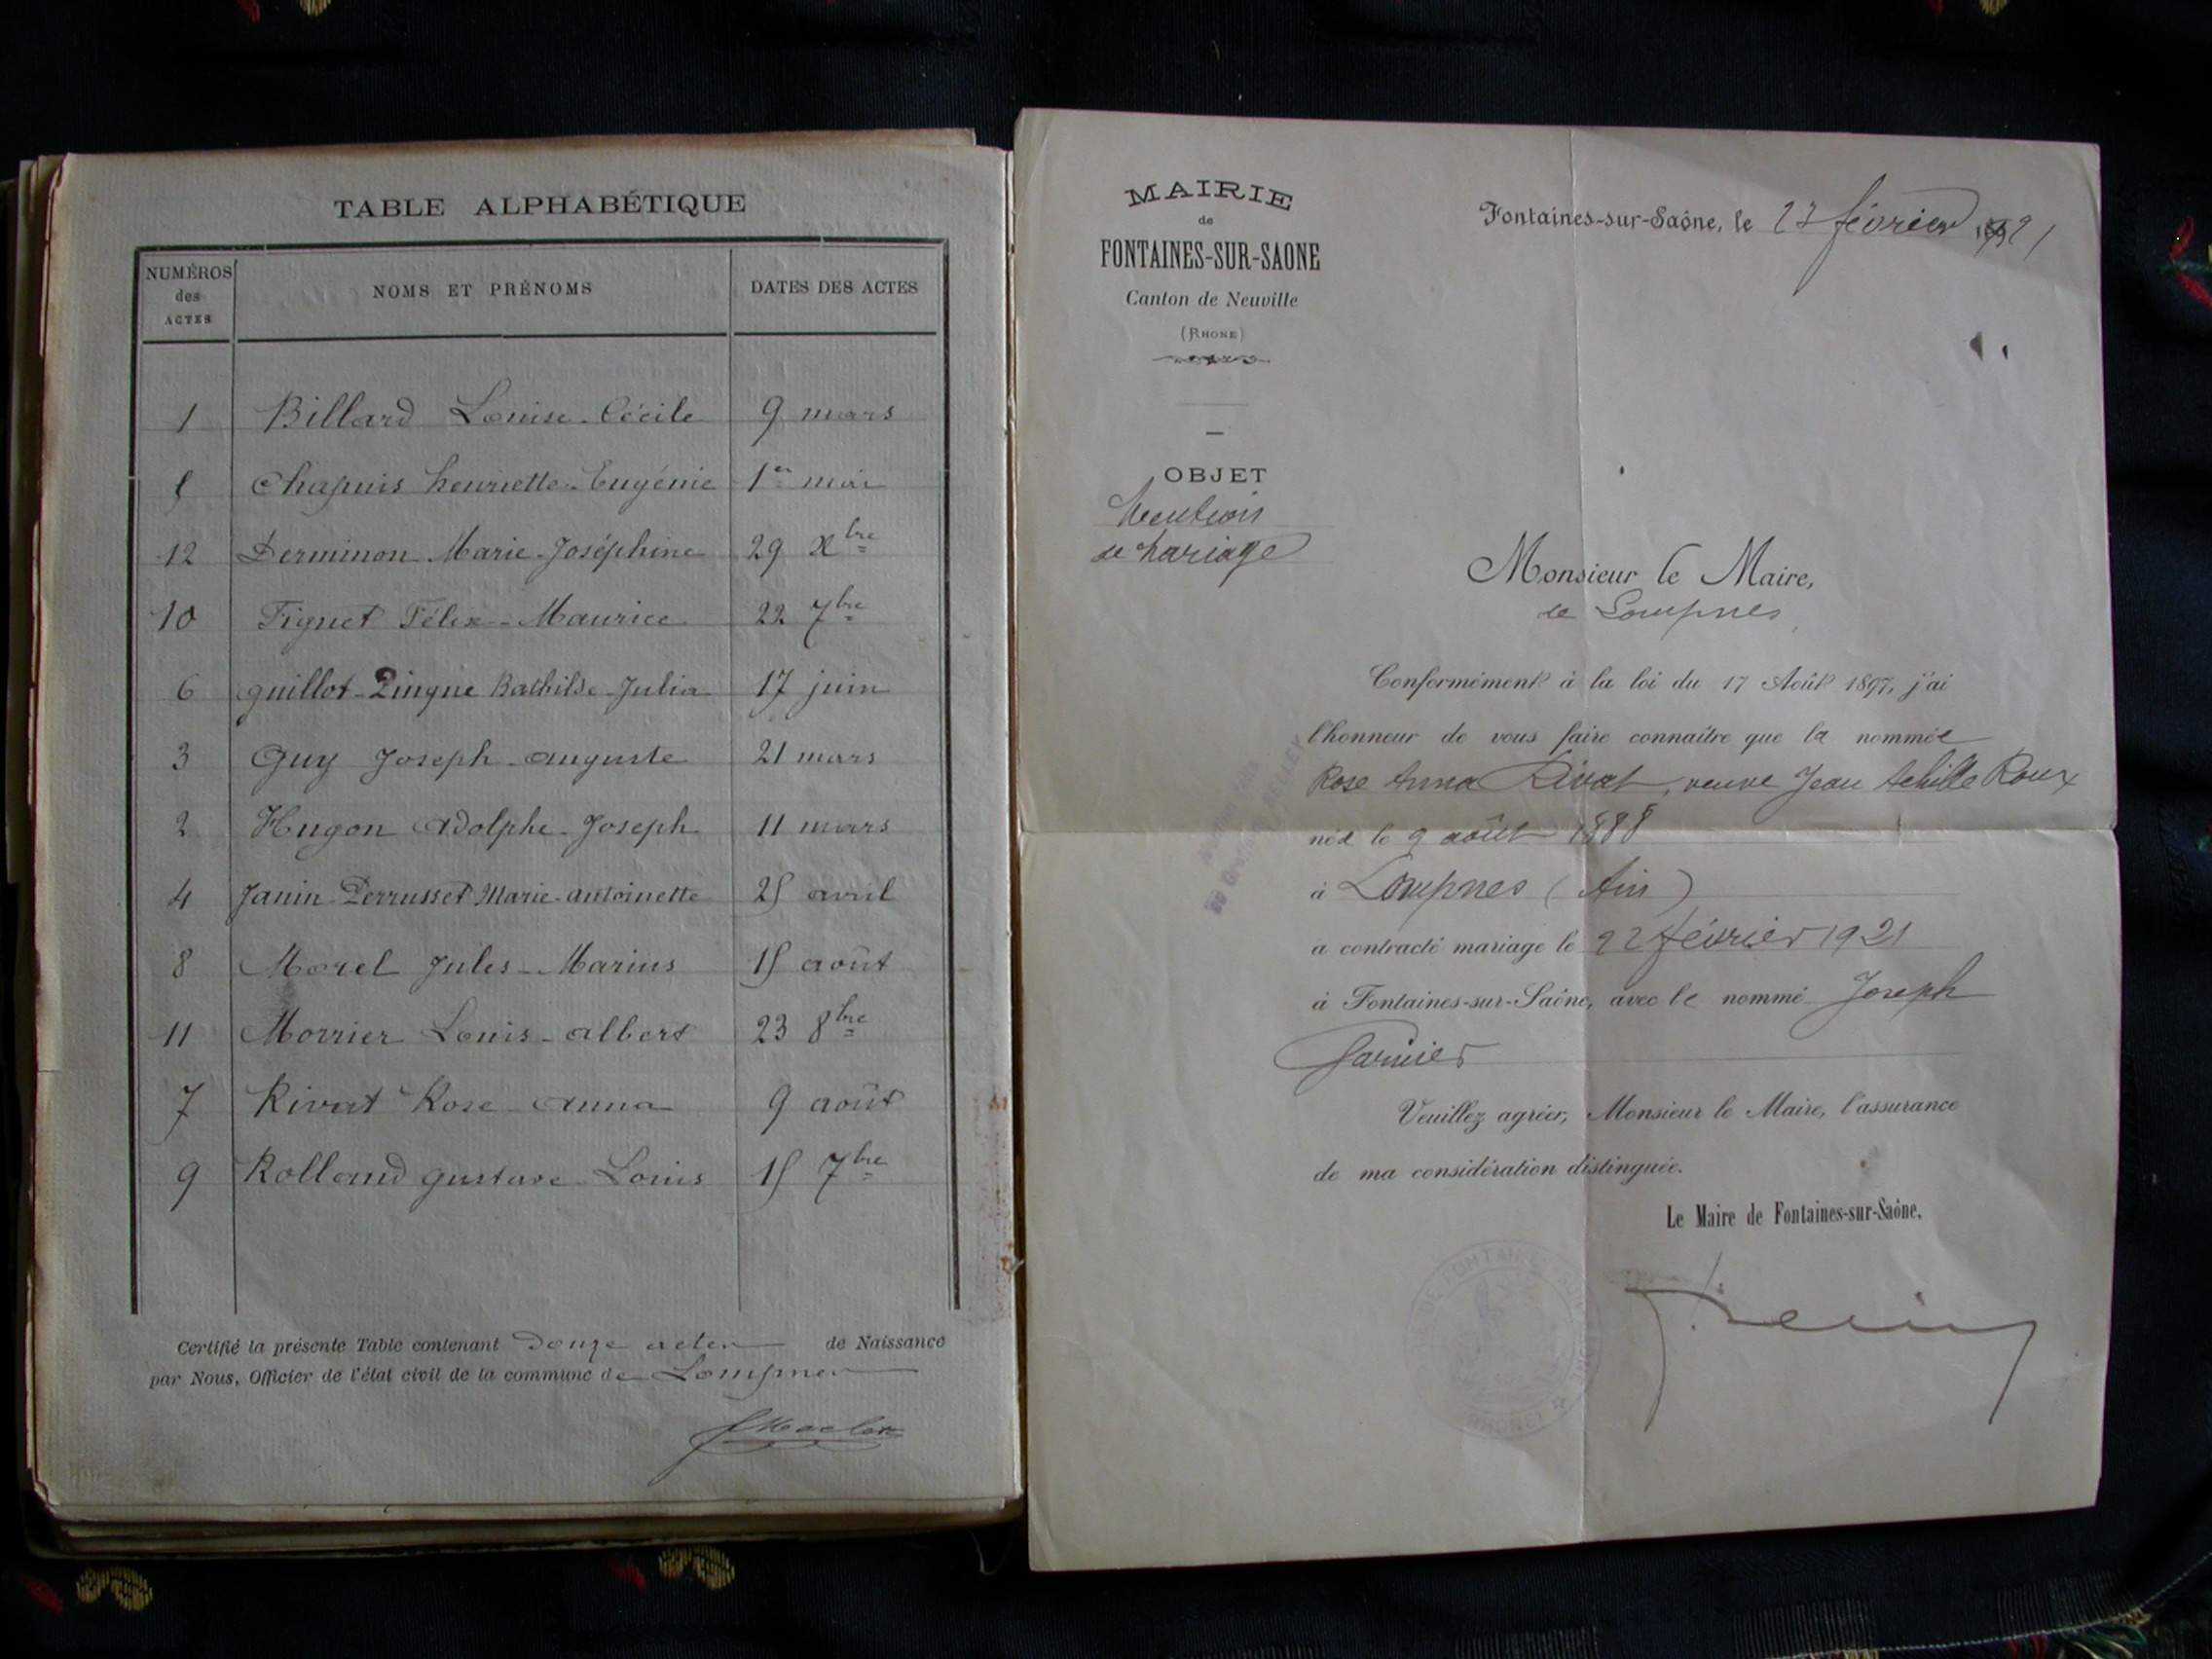 TABLE ALPHABÉTIQUE
NUMÉROS des ACTES NOMS ET PRÉNOMS DATES DES ACTES
1 Billard Louise-Cécile 9 mars
5 Chapuis henriette-Eugénie 1er mai
12 Derminon Marie-Joséphine 29 Xbre
10 Figuet Félix-Maurice 22 7bre
6 guillot-Pingue Bathilde-Julia 17 juin
3 Guy Joseph-auguste 21 mars
2 Hugon Adolphe-Joseph 11 mars
4 Janin-Perrusset Marie-antoinette 25 avril
8 Morel Jules-Marius 15 août
11 Morrier Louis-albert 23 8bre
7 Rivat Rose-anna 9 août
9 Rolland gustave-Louis 15 7bre
Certifié la présente Table contenant Douze actes de Naissance
par Nous, Officier de l'état civil de la commune de Lompnes
MAIRIE
de
FONTAINES-SUR-SAONE
Canton de Neuville
(RHONE)
Fontaines-sur-Saône, le 23 février 1921
OBJET
Mention
de Mariage
Monsieur le Maire,
de Lompnes
Conformément à la loi du 17 Août 1897, j'ai
l'honneur de vous faire connaître que la nommée
Rose Anna Rivat, veuve Jean Achille Roux
née le 9 août 1888
à Lompnes (Ain)
a contracté mariage le 22 février 1921
à Fontaines-sur-Saône, avec le nommé Joseph
Garnier
Veuillez agréer, Monsieur le Maire, l'assurance
de ma considération distinguée.
Le Maire de Fontaines-sur-Saône,